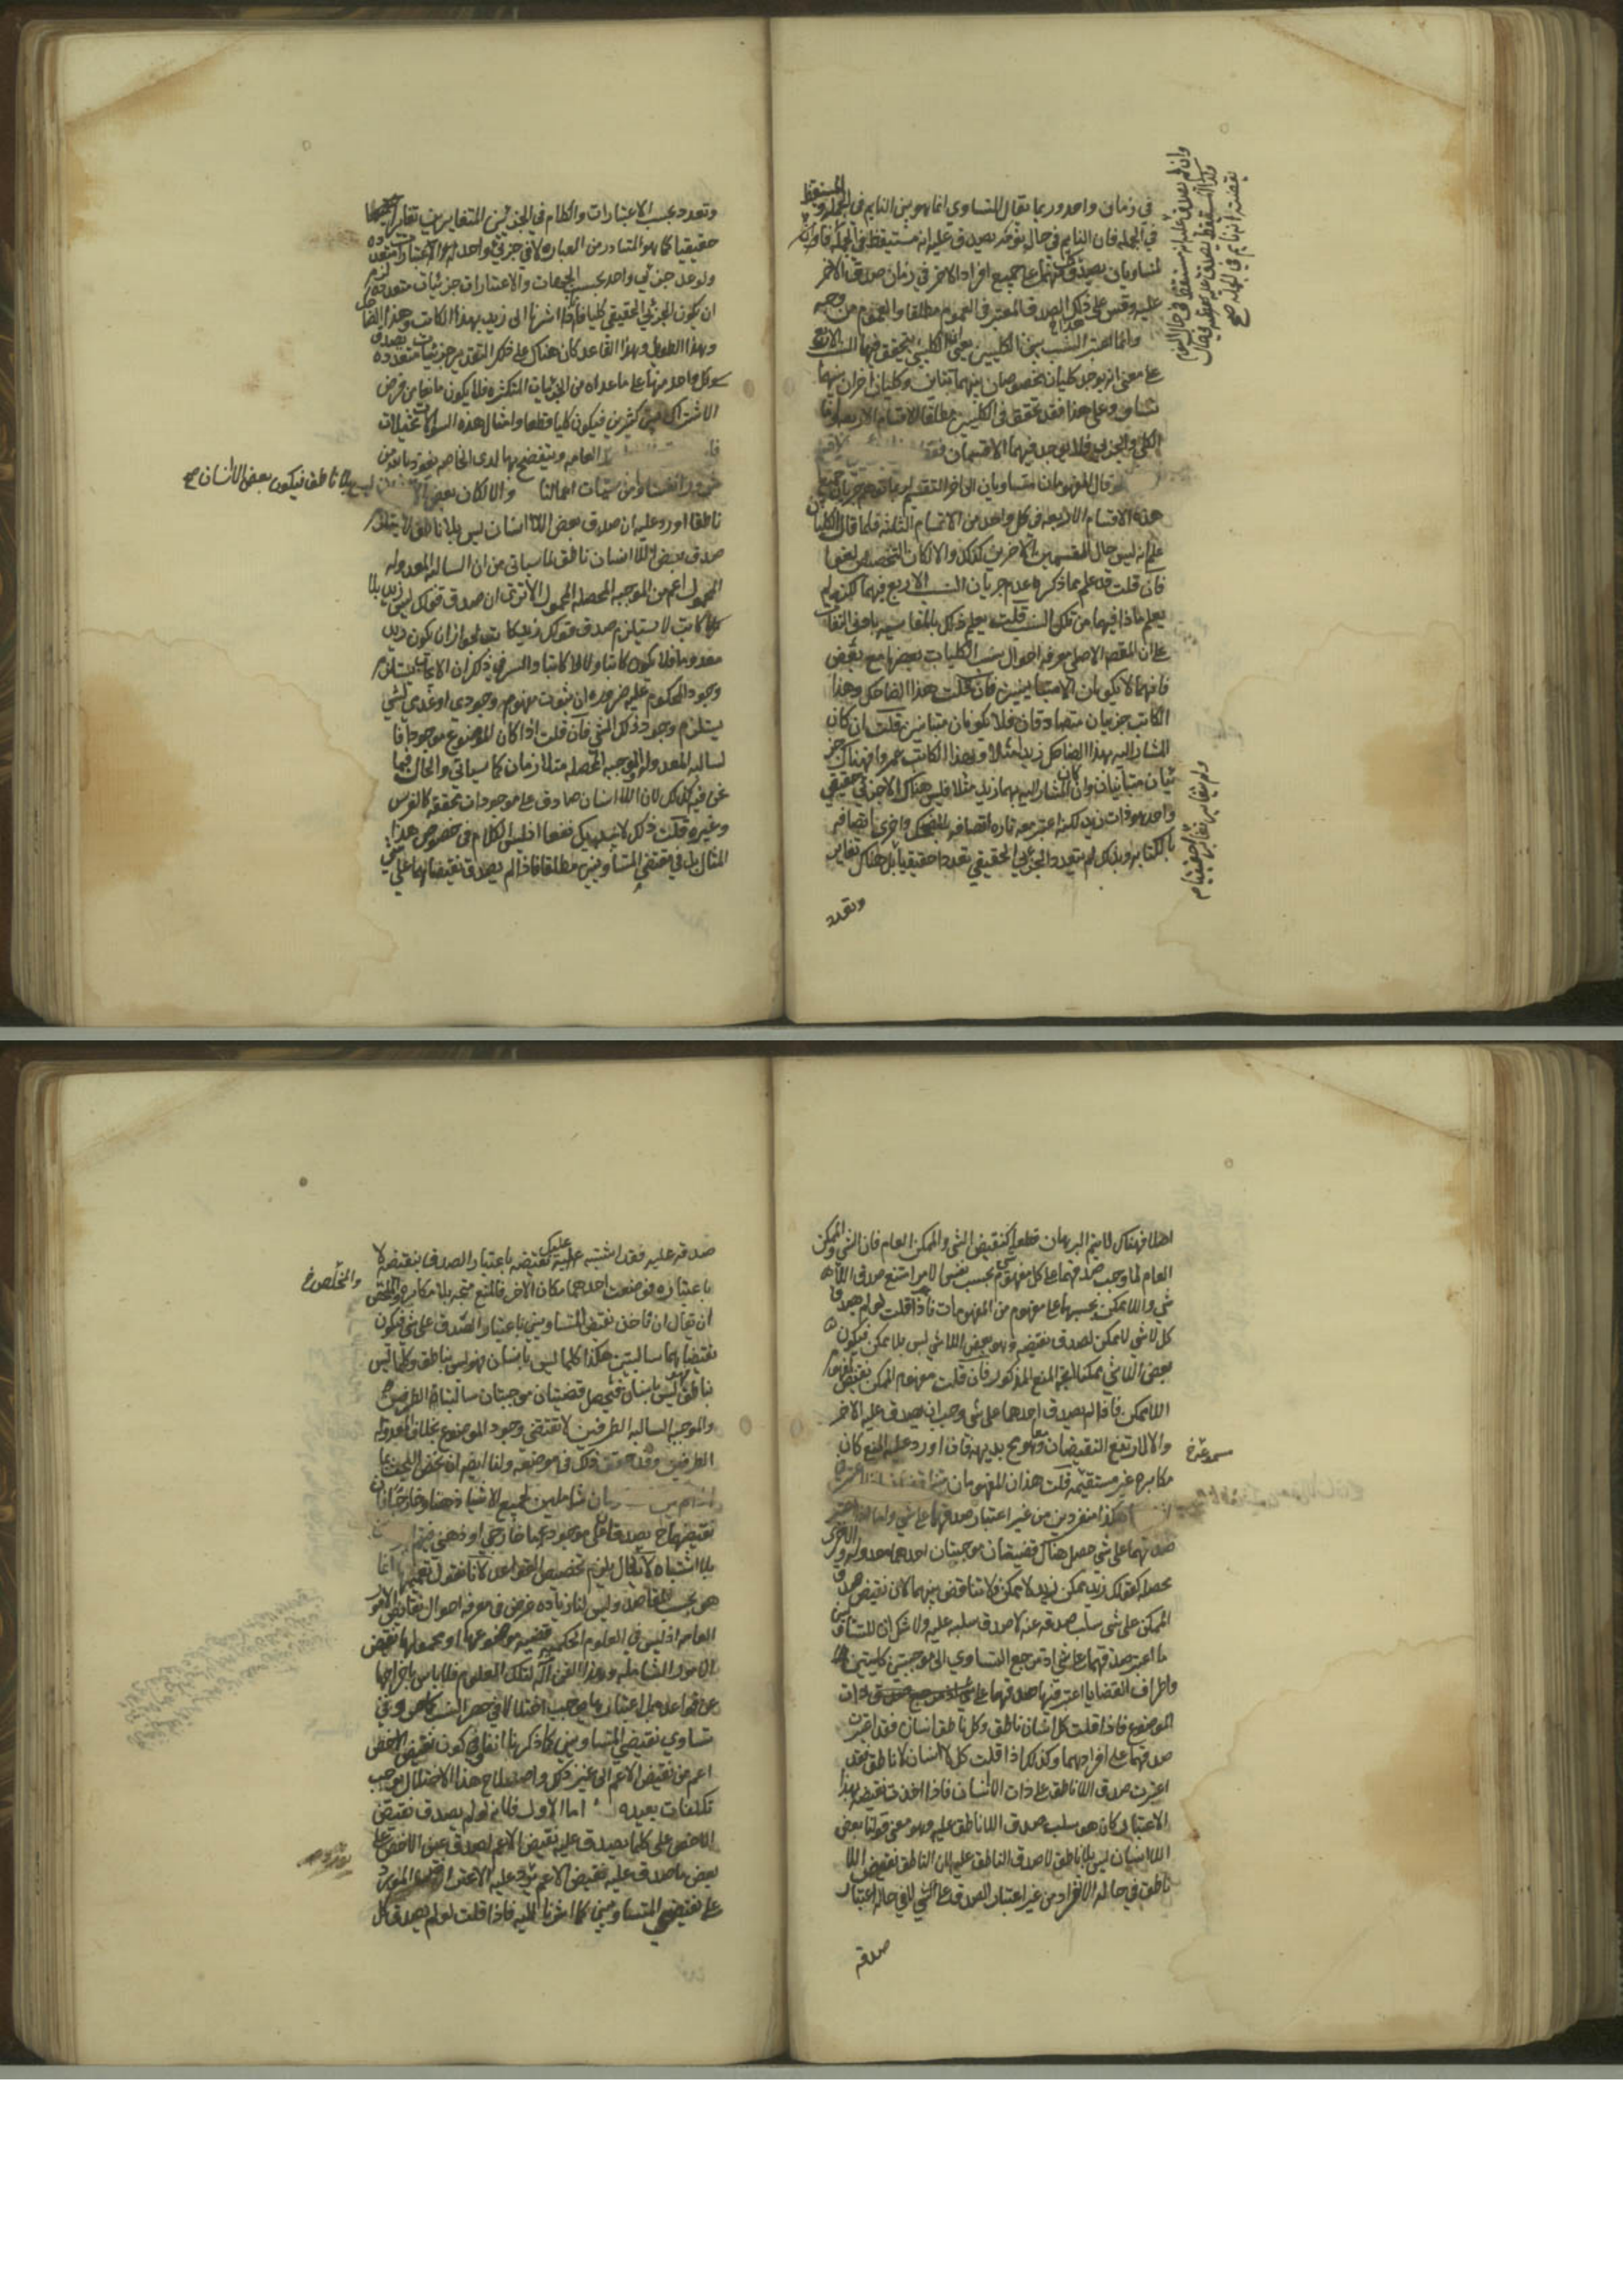 في زمان واحد وربما يقال التساوي انما هو بين النايم في الجملة والمستيقظ
في الجملة فان النايم في حال نومه يصدق عليه انه مستيقظ في الجملة
المتساويان يصدق كل منهما على جميع افراد الاخر في زمان صدق الاخر
عليه وقس على ذلك الصدق المعتبر في العموم مطلقا والعموم من وجه
وانما اعتبر النسب بين الكليين يعني ان الكليين يتحقق فيهما النسب الاربع
على معنى انه يوجد كليان مخصوصان بينهما تباين وكليان اخران بينهما
تساو وعلى هذا فقد تحقق في الكليين مطلقا الاقسام الاربعة واما
الكلي والجزئي فلا يوجد فيهما الا قسمان
قال المفهومان متساويان الى اخر التقسيم
هذه الاقسام الاربعة في كل واحد من الاقسام الثلثة فلما قال الكليان
علم انه ليس حال القسمين الاخرين كذلك والا لكان التخصيص لغوا
فان قلت قد علم بما ذكره عدم جريان النسب الاربع فيهما لكن لم
يعلم ماذا فيهما من تلك النسب قلت يعلم ذلك بالمقايسة بادنى التفات
على ان المقصد الاصلي معرفة احوال نسب الكليات بعضها مع بعض
فانهما لا يكونان الا متباينين فان قلت هذا الضاحك وهذا
الكاتب جزئيان متصادقان فلا يكونان متباينين قلت ان كان
المشار اليه بهذا الضاحك زيدا مثلا وبهذا الكاتب عمروا فهناك جز
ئيان متباينان وان كان المشار اليه بهما زيد مثلا فليس هناك الا جزئي حقيقي
واحد هو ذات زيد لكنه اعتبر معه تارة اتصافه بالضحك واخرى اتصافه
بالكتابة وبذلك لم يتعدد الجزئي الحقيقي تعددا حقيقيا بل هناك تغاير
وتعدد
وان لم يصدق عليه انه مستيقظ في حال النوم
ولم يتغاير تغايرا حقيقيا
وتعدد بحسب الاعتبارات والكلام في الجزئيين المتغايرين تغايرا
حقيقيا كما هو المتبادر من العبارة لا في جزئي واحد له اعتبارات متعددة
ولو عد جزئي واحد بحسب الجهات والاعتبارات جزئيات متعددة لزم
ان يكون الجزئي الحقيقي كليا فانا اذا اشرنا الى زيد بهذا الكاتب وهذا الضاحك
وبهذا الطويل وبهذا القاعد كان هناك على ذلك التقدير جزئيات متعددة يصدق
كل واحد منها على ما عداه من الجزئيات المتكثرة فلا يكون مانعا من فرض
الاشتراك بين كثيرين فيكون كليا قطعا وامثال هذه السوالات تخيلات
العامة ويفتضح بها لدى الخاصة نعوذ بالله من
شرور انفسنا ومن سيئات اعمالنا والا لكان بعض
ليس بلا ناطق فيكون بعض اللاانسان صح
ناطقا اورد عليه ان صدق بعض اللاانسان ليس بلا ناطق لا يستلزم
صدق بعض اللاانسان ناطق لما سياتي من ان السالبة المعدولة
المحمول اعم من الموجبة المحصلة المحمول الا ترى ان صدق قولك ليس زيد بلا
كاتب لا يستلزم صدق قولك زيد كاتب لجواز ان يكون زيد
معدوما فلا يكون كاتبا ولا لا كاتبا والسر في ذلك ان الايجاب يستلزم
وجود المحكوم عليه ضرورة ان ثبوت مفهوم وجودي او عدمي لشي
يستلزم وجود ذلك الشي فان قلت اذا كان الموضوع موجودا فا
لسالبة المعدولة والموجبة المحصلة متلازمان كما سياتي والحال فيما
نحن فيه كذلك لان اللاانسان صادق على موجودات محققة كالفرس
وغيره قلت ذلك لا يجديك نفعا اذ ليس الكلام في خصوص هذا
المثال بل في نقيضي المتساويين مطلقا فاذا لم يصدق نقيضاهما على شي
اصلا فهناك لا يتم البرهان قطعا كنقيض الشي والممكن العام فان الشي والممكن
العام لما وجب صدقهما على كل مفهوم بحسب نفس الامر امتنع صدق اللا
شي واللاممكن بحسبها على مفهوم من المفهومات فاذا قلت لو لم يصدق
كل لاشي لاممكن لصدق نقيضه وهو بعض اللاشي ليس بلا ممكن فيكون
بعض اللاشي ممكنا اتجه المنع المذكور فان قلت مفهوم الممكن نقيض لمفهوم
اللاممكن فاذا لم يصدق احدهما على شي وجب ان يصدق عليه الاخر
والا لارتفع النقيضان وهو مح بديهة فان اورد عليه المنع كان
مكابرة غير مستقيمة قلت هذان المفهومان
هكذا منفردين من غير اعتبار صدقهما على شي واما اذا اعتبر
صدقهما على شي حصل هناك قضيتان موجبتان احدهما معدولة والاخرى
محصلة كقولك زيد ممكن زيد لا ممكن فلا تناقض بينهما لان نقيض صدق
الممكن على شي سلب صدقه عنه لا صدق سلبه عليه ولا شك ان المتساويين
ما اعتبر صدقهما على شي اذ مرجع التساوي الى موجبتين كليتين
واطراف القضايا اعتبر فيها صدقهما على ذات
الموضوع فاذا قلت كل انسان ناطق وكل ناطق انسان فقد اعتبرت
صدقهما على افرادهما وكذلك اذا قلت كل لا انسان لا ناطق فقد
اعتبرت صدق اللاناطق على ذات اللاانسان فاذا اخذت نقيضه بهذا
الاعتبار كان هو سلب صدق اللاناطق عليه وهو معنى قولنا بعض
اللاانسان ليس بلا ناطق لا صدق الناطق عليه لان الناطق نقيض اللا
ناطق في حالة الانفراد من غير اعتبار الصدق على شي لا في حالة اعتبار
صدقه
صدقه عليه فقد اشتبه عليك نقيضه باعتبار الصدق بنقيضه لا
باعتباره فوضعت احدهما مكان الاخر فالمنع متجه بلا مكابرة والحق
والمخلص
ان يقال ان ناخذ نقيضي المتساويين باعتبار الصدق على شي فيكون
نقيضاهما سالبتين هكذا كلما ليس بانسان فهو ليس بناطق وكلما ليس
بناطق فهو ليس بانسان فيحصل قضيتان موجبتان سالبتا الطرفين
والموجبة السالبة الطرفين لا تقتضي وجود الموضوع بخلاف المعدولة
الطرفين وقد حقق ذلك في موضعه ولنا ايضا ان نخص
شاملين لجميع الاشياء ذهنا وخارجا فان
نقيضهما ح يصدق على موجود خارجي او ذهني
بلا اشتباه لا يقال يلزم تخصيص القواعد لانا نقول تعميمها انما
هو بحسب المقاصد وليس لنا زيادة غرض في معرفة احوال نقايض الامور
العامة اذ ليس في العلوم الحكمية قضية موضوعها او محمولها نقيض
الامور الشاملة وهذا الفن آلة لتلك العلوم فلا باس باخراجها
عن قواعده بل اعتبارها يوجب اختلالا في حصر النسب كما مر وفي
تساوي نقيضي المتساويين كما ذكرنا انفا وفي كون نقيض الاخص
اعم من نقيض الاعم الى غير ذلك واصلاح هذا الاختلال يوجب
تكلفات بعيدة اما الاول فلانه لو لم يصدق نقيض
الاخص على كلما يصدق عليه نقيض الاعم لصدق عين الاخص على
بعض ما صدق عليه نقيض الاعم يرد عليه الاعتراض المورد
على نقيضي المتساويين كما اشرنا اليه فاذا قلت لو لم يصدق كل